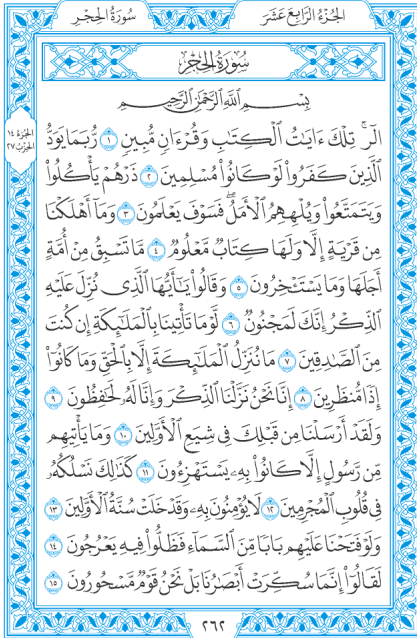 سُورَةُ الحِجْرِ
الجُزْءُ الرَّابِعَ عَشَرَ
سُورَةُ الحِجْرِ
الجُزْءُ ١٤
الحِزْبُ ٢٧
بِسْمِ ٱللَّهِ ٱلرَّحْمَٰنِ ٱلرَّحِيمِ
الٓرۚ تِلْكَ ءَايَٰتُ ٱلْكِتَٰبِ وَقُرْءَانٍ مُّبِينٍ ١ رُّبَمَا يَوَدُّ
ٱلَّذِينَ كَفَرُوا۟ لَوْ كَانُوا۟ مُسْلِمِينَ ٢ ذَرْهُمْ يَأْكُلُوا۟
وَيَتَمَتَّعُوا۟ وَيُلْهِهِمُ ٱلْأَمَلُۖ فَسَوْفَ يَعْلَمُونَ ٣ وَمَآ أَهْلَكْنَا
مِن قَرْيَةٍ إِلَّا وَلَهَا كِتَابٌ مَّعْلُومٌ ٤ مَّا تَسْبِقُ مِنْ أُمَّةٍ
أَجَلَهَا وَمَا يَسْتَـْٔخِرُونَ ٥ وَقَالُوا۟ يَٰٓأَيُّهَا ٱلَّذِى نُزِّلَ عَلَيْهِ
ٱلذِّكْرُ إِنَّكَ لَمَجْنُونٌ ٦ لَّوْ مَا تَأْتِينَا بِٱلْمَلَٰٓئِكَةِ إِن كُنتَ
مِنَ ٱلصَّٰدِقِينَ ٧ مَا نُنَزِّلُ ٱلْمَلَٰٓئِكَةَ إِلَّا بِٱلْحَقِّ وَمَا كَانُوٓا۟
إِذًا مُّنظَرِينَ ٨ إِنَّا نَحْنُ نَزَّلْنَا ٱلذِّكْرَ وَإِنَّا لَهُۥ لَحَٰفِظُونَ ٩
وَلَقَدْ أَرْسَلْنَا مِن قَبْلِكَ فِى شِيَعِ ٱلْأَوَّلِينَ ١٠ وَمَا يَأْتِيهِم
مِّن رَّسُولٍ إِلَّا كَانُوا۟ بِهِۦ يَسْتَهْزِءُونَ ١١ كَذَٰلِكَ نَسْلُكُهُۥ
فِى قُلُوبِ ٱلْمُجْرِمِينَ ١٢ لَا يُؤْمِنُونَ بِهِۦ وَقَدْ خَلَتْ سُنَّةُ ٱلْأَوَّلِينَ ١٣
وَلَوْ فَتَحْنَا عَلَيْهِم بَابًا مِّنَ ٱلسَّمَآءِ فَظَلُّوا۟ فِيهِ يَعْرُجُونَ ١٤
لَقَالُوٓا۟ إِنَّمَا سُكِّرَتْ أَبْصَٰرُنَا بَلْ نَحْنُ قَوْمٌ مَّسْحُورُونَ ١٥
٢٦٢